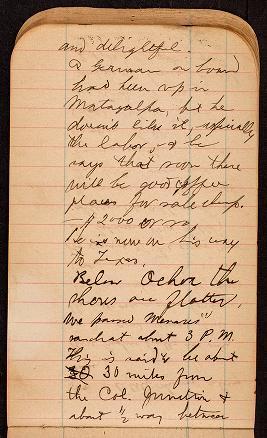 and delightful.
A German on board
had been up in
Matagalpa, but he
doesn't like it, especially
the labor, & he
says that soon there
will be good coffee
places for sale cheap.
— $2000 or so,
he is now on his way
to Texas.
Below Ochoa the
shores are flatter.
We passed "Menaris"
ranch at about 3 P.M.
This is said to be about
30 30 miles from
the Col. Junction &
about ½ way between